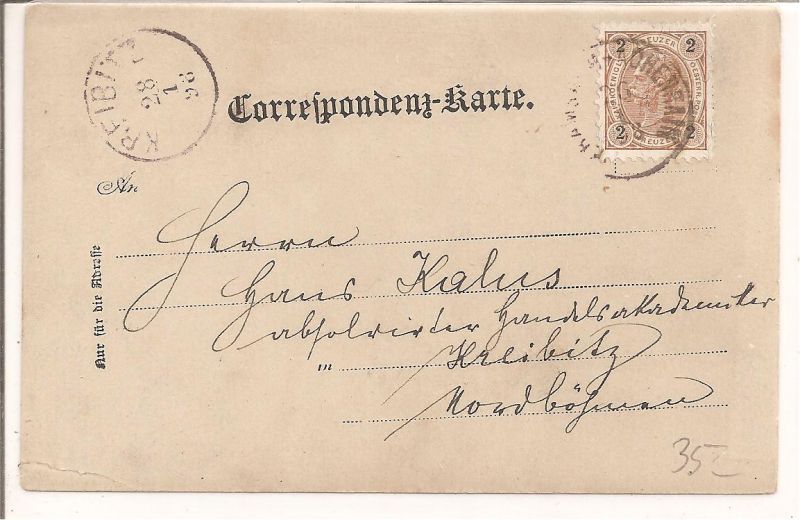 KREIBITZ
28
1
98
Correspondenz-Karte.
2 KREUZER 2
2 KREUZER 2
An
Nur für die Adresse
Herrn
Hans Kalus
absolvirter Handelsakademiker
in Kreibitz
Nordböhmen
35